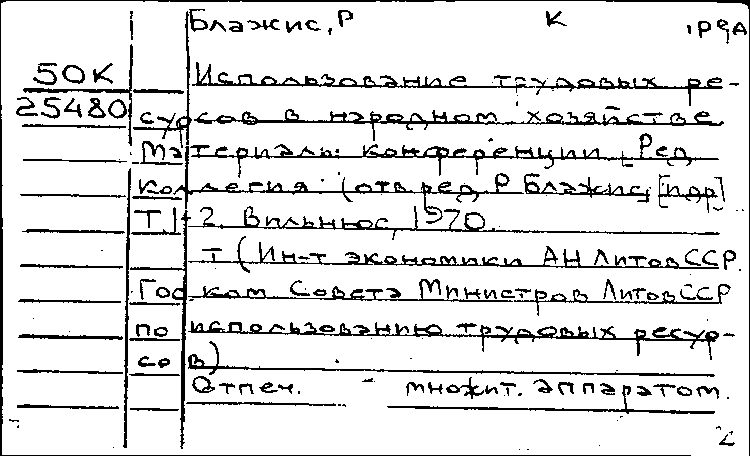 Блажис, Р К ред
50К Использование трудовых ре-
25480 сурсов в народном хозяйстве
Материалы конференции [Ред
коллегия: (отв ред Р Блажис, [и др]
Т. 1-2. Вильнюс, 1970.
т (Ин-т экономики АН ЛитовССР.
Гос ком Совета Министров ЛитовССР
по использованию трудовых ресур-
сов)
Отпеч. множит. аппаратом.